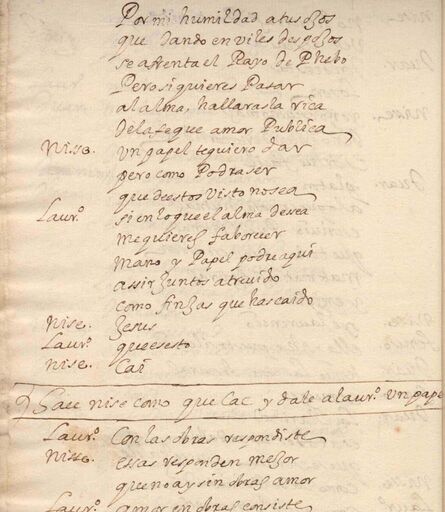 Por mi humildad a tus ojos
que dando en viles despojos
se afrenta el Rayo de Phebo
Pero si quieres Pasar
al alma, hallaras la rica
de la fe que amor Publica
Nise. Un papel te quiero dar
pero como Podra ser
que de estos visto no sea
Laur.º si en lo que el alma desea
me quieres faborecer
mano y Papel podre aqui
assir Juntos atreuido
como finjas que has caido
Nise. Jesus
Laur.º que es esto
Nise. Cai
Cae nise como que Cae y dale a laur.º Un pape
Laur.º Con las obras respondiste
Nise. essas responden mejor
que no ay sin obras amor
Laur.º amor en obras consiste